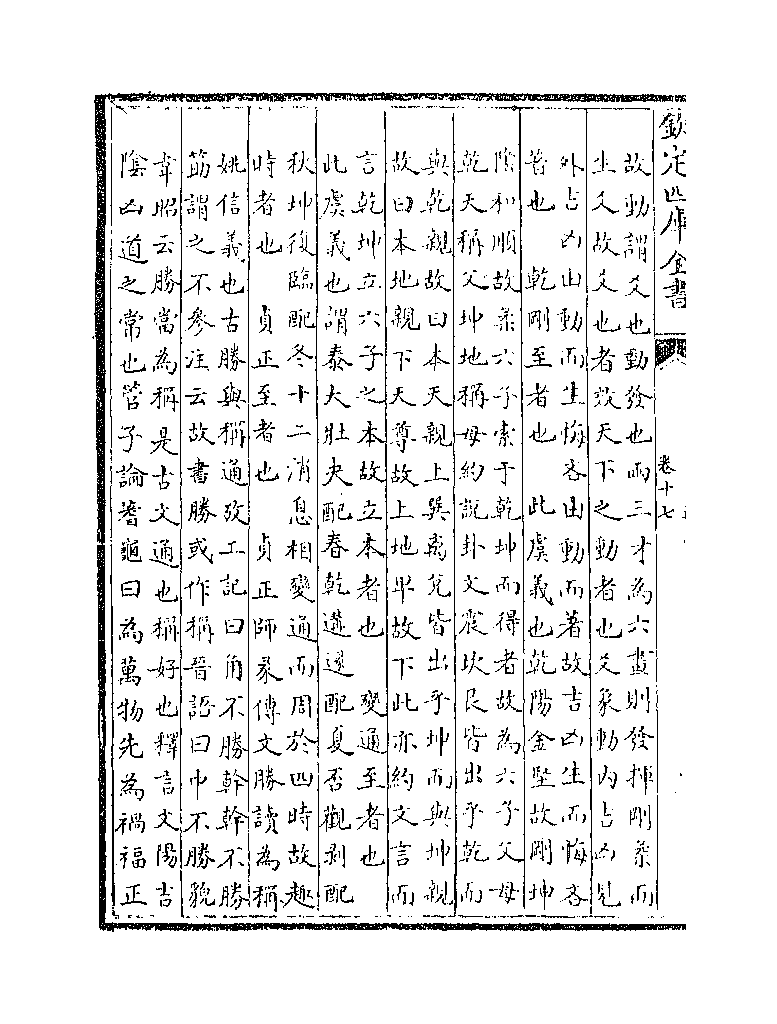 欽定四庫全書
卷十七
故動謂爻也動發也兩三才為六畫則發揮剛柔而
生爻故爻也者效天下之動者也爻象動内吉凶見
外吉凶由動而生悔吝由動而著故吉凶生而悔吝
著也　乾剛至者也　此虞義也乾陽金堅故剛坤
陰和順故柔六子索于乾坤而得者故為六子父母
乾天稱父坤地稱母約說卦文震坎艮皆出乎乾而
與乾親故曰本天親上巽离兌皆出乎坤而與坤親
故曰本地親下天尊故上地卑故下此亦約文言而
言乾坤立六子之本故立本者也　變通至者也
此虞義也謂泰大壯夬配春乾遘遯配夏否觀剥配
秋坤復臨配冬十二消息相變通而周於四時故趣
時者也　貞正至者也　貞正師彖傳文勝讀為稱
姚信義也古勝與稱通攷工記曰角不勝幹幹不勝
筋謂之不參注云故書勝或作稱晉語曰中不勝貌
韋昭云勝當為稱是古文通也稱好也釋言文陽吉
陰凶道之常也管子論蓍龜曰為萬物先為禍福正